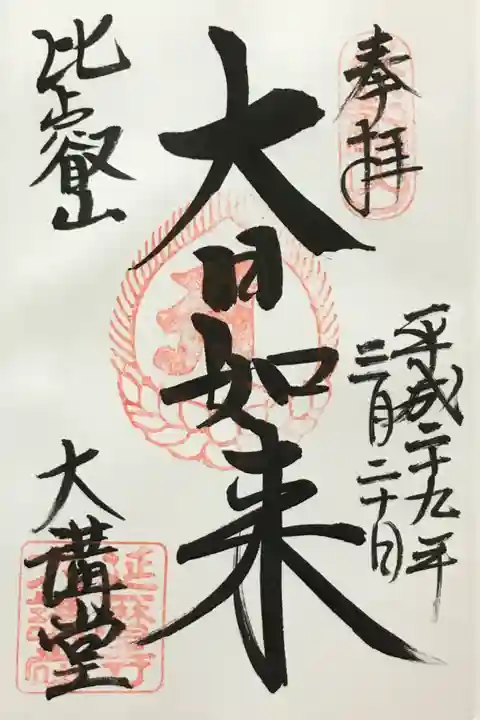 奉拝
平成二十九年
三月二十日
大日如来
比叡山
大講堂
延暦寺